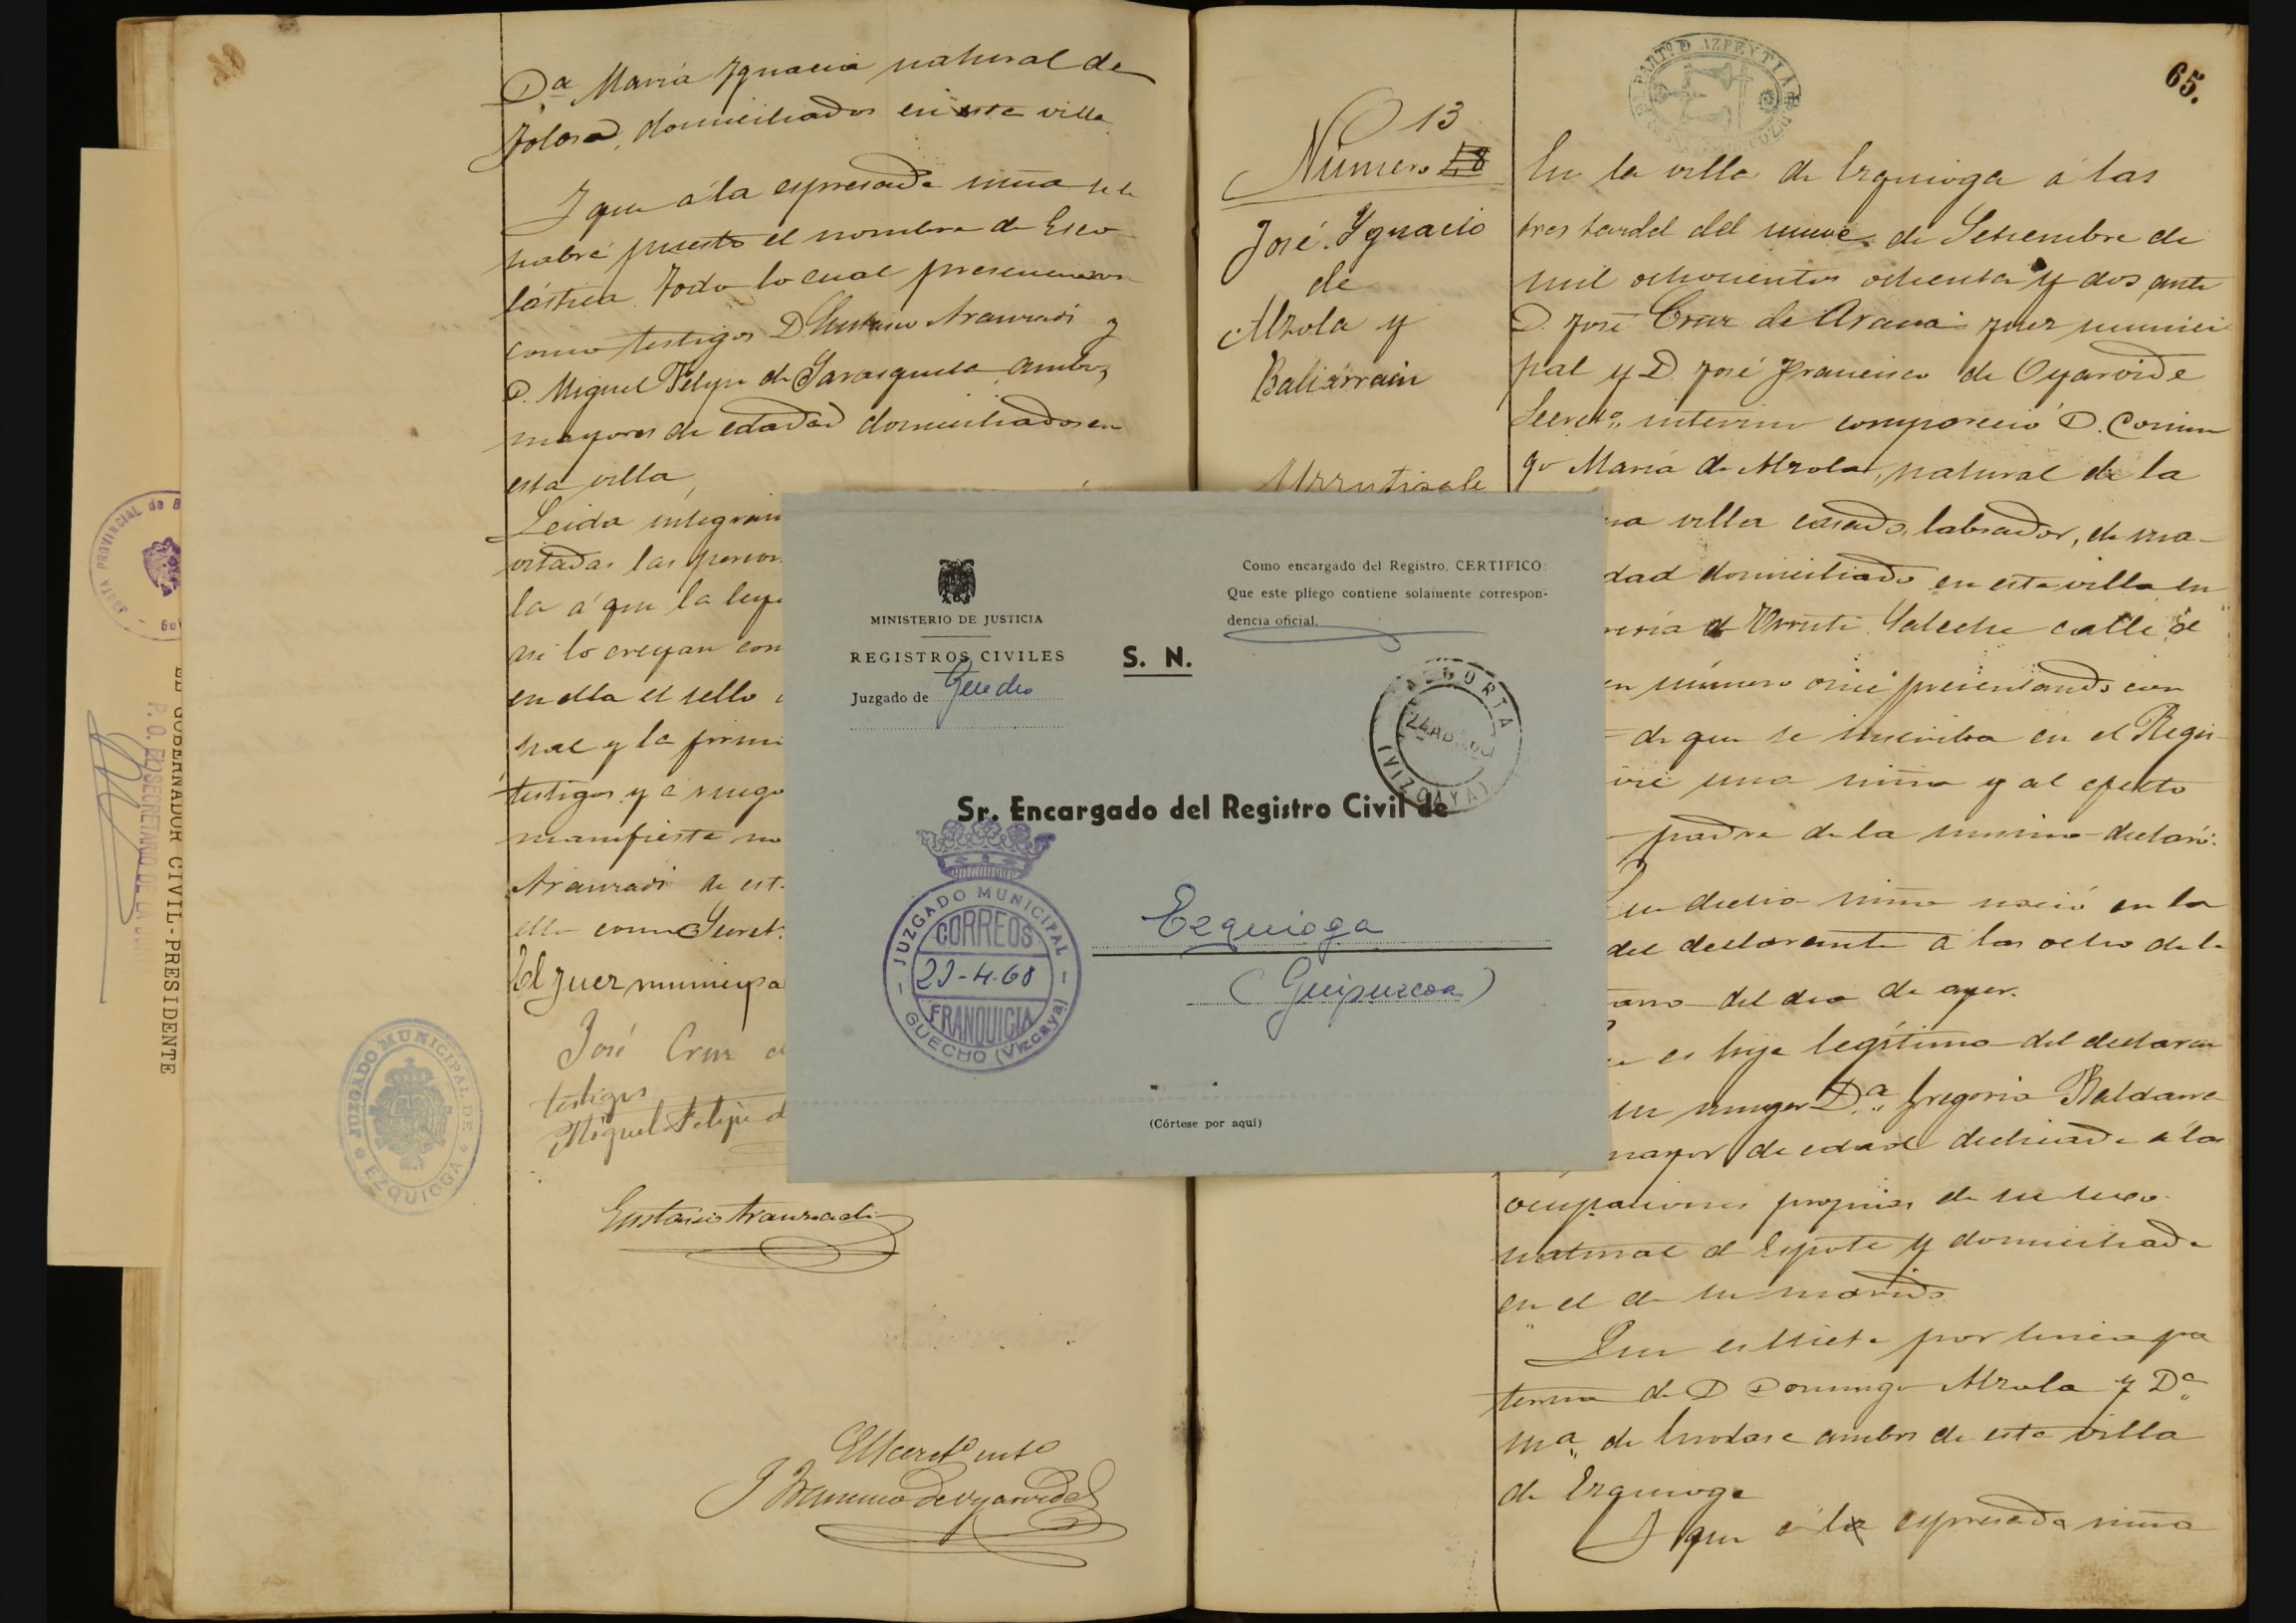 Dª María Ygnacia natural de
Tolosa, domiciliados en esta villa
Y que á la espresada niña se le
habré puesto el nombre de Esco
lástica. Todo lo cual presenciaron
como testigos D. Eustasio Aranzadi y
D. Miguel Felipe de Sarasqueta ambos
mayores de edad domiciliados en
esta villa
Leida integram
vitadas las person
la á que la leye
asi lo creyan con
en ella el sello
pal y la firm
testigos y á ruego
manifieste no
Aranzadi de est
ella como Secret.
El Juez municipa
José Cruz d
testigos
Miguel Felipe d
Eustasio Aranzadi
El Secretº intº
J Francisco de Oyarvide
JUZGADO MUNICIPAL DE
EZQUIOGA
JUNTA PROVINCIAL de
EL GOBERNADOR CIVIL-PRESIDENTE
P. O. EL SECRETARIO DE LA
65.
PARTº D AZPEYTIA
13
Número 18
José Ygnacio
de
Alzola y
Baliarrain
Urrutisale
En la villa de Ezquioga á las
tres tarde del nueve de Setiembre de
mil ochocientos ochenta y dos ante
D. José Cruz de Arana juez munici
pal y D. José Francisco de Oyarvide
Secretº interino compareció D. Domin
go María de Alzola, natural de la
ma villa casado, labrador, de ma-
dad domiciliado en esta villa en
Urruti Saleche calle
en número once presentando con
de que se inscriba en el Regis-
vil una niña y al efecto
padre de la misma declaró:
Que dicha niña nació en la
del declarante á las ocho de la
ana del dia de ayer.
es hija legítima del declaran
su muger Dª Gregoria Baldarra
mayor de edad dedicada á las
ocupaciones propias de su sexo
natural de Ezpote y domiciliada
en el de su marido
Que es nieta por linea pa
terna de D Domingo Alzola y Dª
Mª de ambos de esta villa
de Ezquioga
Y que á la espresada niña
MINISTERIO DE JUSTICIA
REGISTROS CIVILES
Juzgado de Guecho
S. N.
Como encargado del Registro, CERTIFICO:
Que este pliego contiene solamente correspon-
dencia oficial.
ALGORTA
24 ABR
(VIZCAYA)
Sr. Encargado del Registro Civil de
Ezquioga
(Guipuzcoa)
JUZGADO MUNICIPAL
CORREOS
23-4-68
FRANQUICIA
GUECHO (Vizcaya)
(Córtese por aquí)